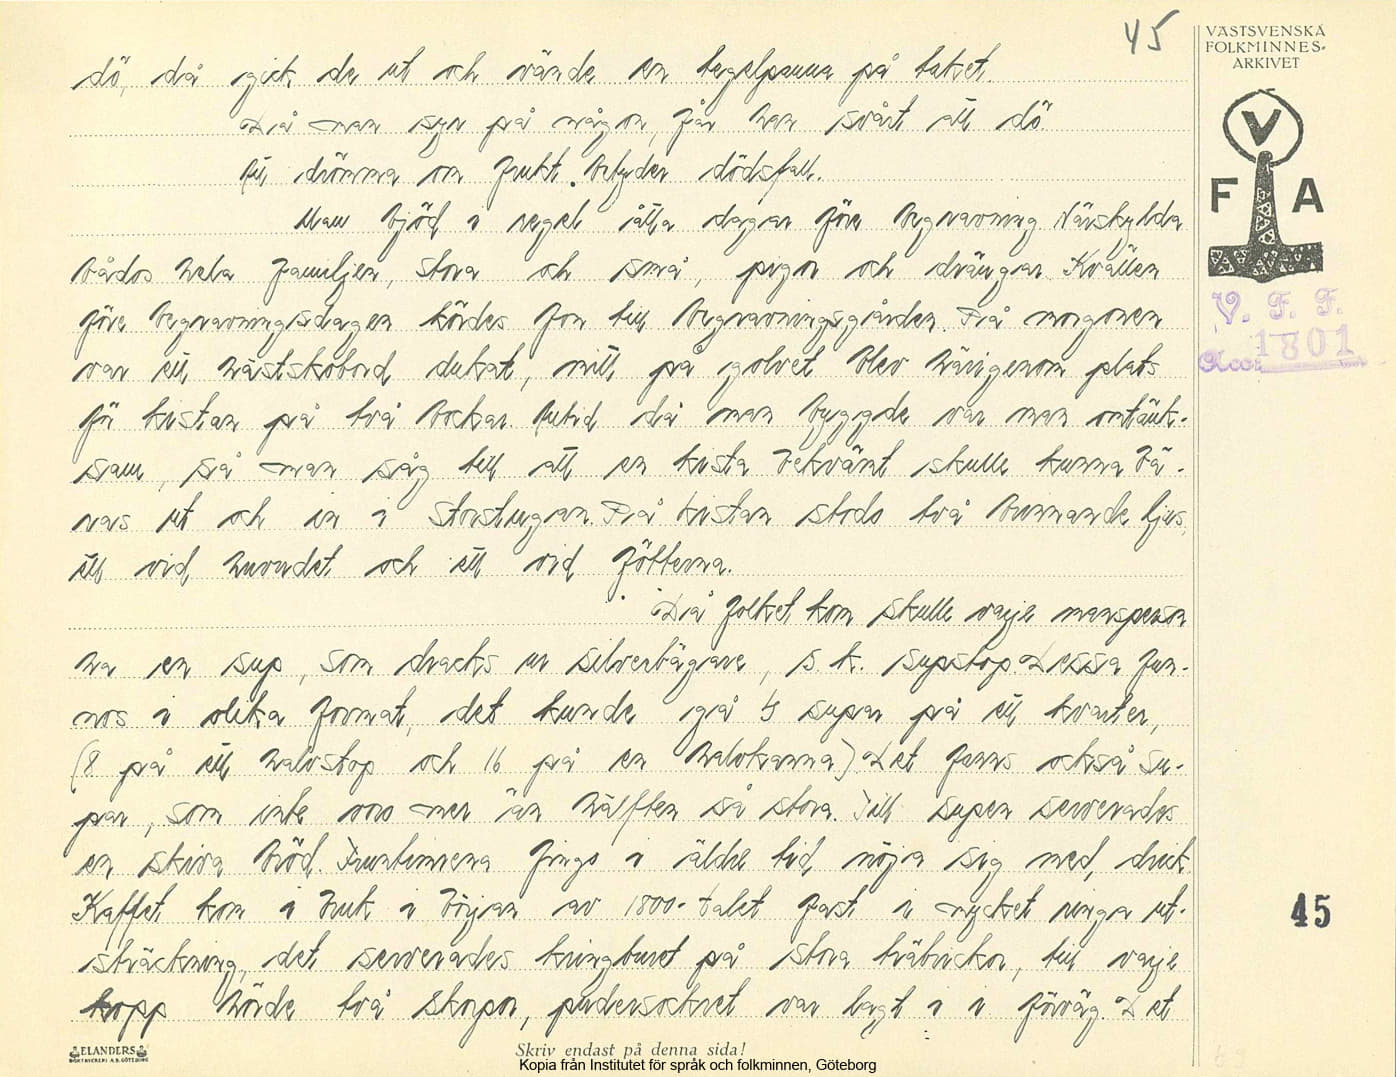 45
VÄSTSVENSKA
FOLKMINNES-
ARKIVET
V
F A
V. F. F.
Acc. 1801
dö, då gick de ut och vände en tegelpanna på taket.
Då man syr på någon, får han svårt att dö.
Att drömma om frukt. betyder dödsfall.
Man bjöd i regel åtta dagar före begravning. Närskylda
bådos hela familjen, stora och små, pigor och drängar. Kvällen
före begravningsdagen kördes fon till begravningsgården. På morgonen
var ett västskobord dukat, mitt på golvet blev härigenom plats
för kistan på två bockar. Altid då man byggde var man omtänk-
sam, så man såg till att en kista bekvämt skulle kunna bä-
ras ut och in i storstugan. På kistan stodo två brinnande ljus,
ett vid huvudet och ett vid fötterna.
Då folket kom skulle varje mansperson
ha en sup, som dracks ur silverbägare, s.k. supstop. Dessa fun-
nos i olika format, det kunde gå 4 supar på ett kvarter,
(8 på ett halvstop och 16 på en halvkanna). Det fanns också su-
par, som inte voro mer än hälften så stora. Till supen serverades
en skiva bröd. Fruntimrena fingo i äldre tid nöja sig med, drick.
Kaffet kom i bruk i början av 1800-talet fast i mycket ringa ut-
sträckning, det serverades kringburet på stora träbrickor, till varje
kopp hörde två skorpor, pudersockret var lagt i i förväg. Det
45
ELANDERS
BOKTRYCKERI A.B. GÖTEBORG
Skriv endast på denna sida!
Kopia från Institutet för språk och folkminnen, Göteborg